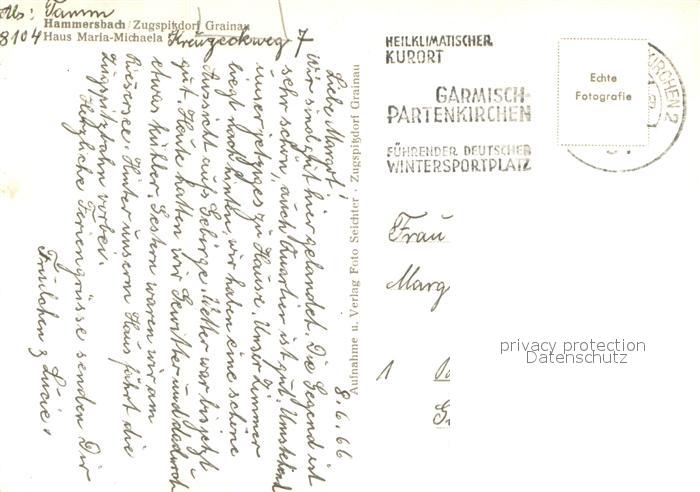 Abs: Tamm
Hammersbach/Zugspitzdorf Grainau
8104 Haus Maria-Michaela Kreuzeckweg 7
8.6.66
Liebe Margot!
Wir sind gut hier gelandet. Die Gegend ist
sehr schön, auch Quartier ist gut.
unser jetziges zu Hause. Unser Zimmer
liegt nach hinten, wir haben eine schöne
Aussicht aufs Gebirge. Wetter war bis jetzt
gut. Heute hatten wir Gewitter und dadurch
etwas kühler. Gestern waren wir am
Riessersee. Hinter unserm Haus führt die
Zugspitzbahn vorbei.
Herzliche Feriengrüsse senden Dir
& Lucie.
Aufnahme u. Verlag Foto Seichter · Zugspitzdorf Grainau
HEILKLIMATISCHER
KURORT
GARMISCH-
PARTENKIRCHEN
FÜHRENDER DEUTSCHER
WINTERSPORTPLATZ
KIRCHEN 2
Echte
Fotografie
Frau
Marg
1
privacy protection
Datenschutz